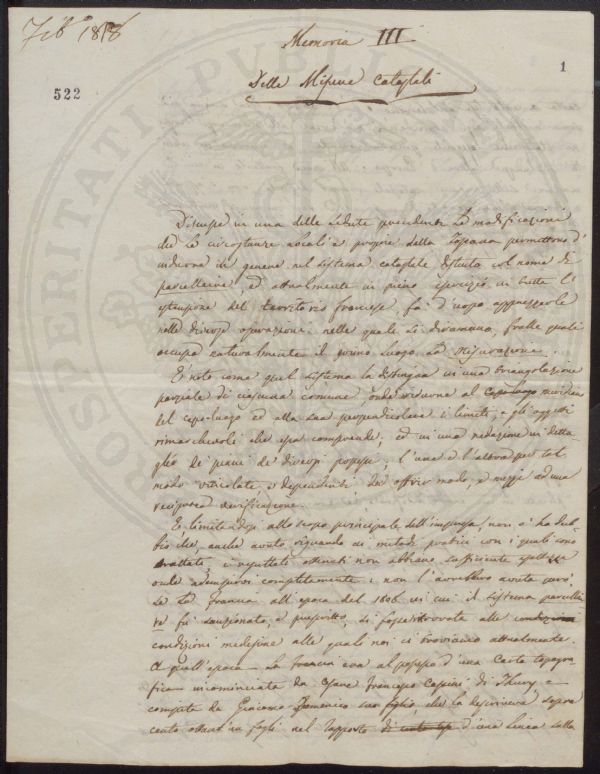 Feb° 1818
Memoria III
1
522
Delle Misure Catastali
Discusse in una delle sedute precedenti le modificazioni
che le circostanze locali e proprie della Toscana permettono d'
indurre in genere nel sistema catastale distinto col nome di
parcellario, ed attualmente in pieno esercizio in tutta l'
estensione del territorio francese, fa d'uopo apprezzarle
nelle diverse operazioni nelle quali si diramano, fralle quali
occupa naturalmente il primo luogo la misurazione.
È noto come quel sistema la distingua in una triangolazione
parziale di ciascuna comune, onde ridurre al capo-luogo meridiana
del capo-luogo ed alla sua perpendicolare i limiti, e gli oggetti
rimarchevoli che essa comprende, ed in una redazione in detta-
glio de' piani de' diversi possessi; l'una e l'altra per tal
modo vincolate e dipendenti da offrir modo, e mezzi ad una
reciproca verificazione.
E limitandosi allo scopo principale dell'impresa, non v'ha dub-
bio che, anche avuto riguardo ai metodi pratici con i quali sono
trattate, i resultati ottenuti non abbiano sufficiente esattezza
onde adempirvi completamente: non l'avrebbero avuta però,
se la Francia all'epoca del 1808 in cui il sistema parcella-
rio fu sanzionato, e prescritto, si fosse ritrovata alle condizioni
condizioni medesime alle quali noi ci troviamo attualmente.
A quell'epoca la Francia era al possesso d'una Carta topogra-
fica incominciata da Cesare Francesco Cassini di Thury e
compita da Giacomo Domenico suo figlio, che la descriveva sopra
cento ottanta fogli nel rapporto di d'una linea sulla